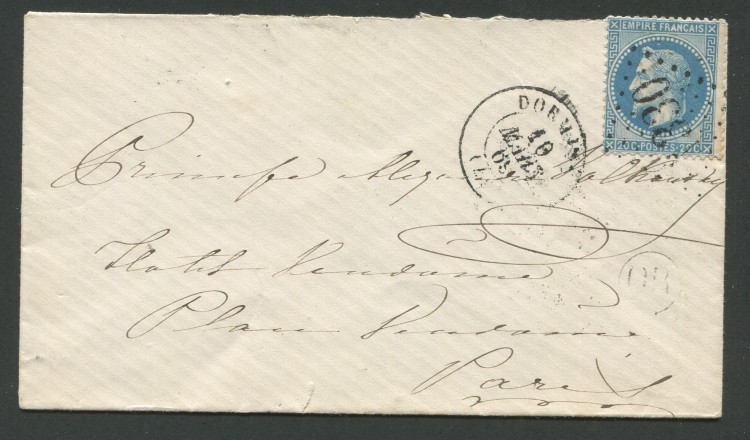 EMPIRE FRANÇAIS
20C POSTES 20C
DORMANS
10
MARS
68
Prince Alexandre Wolkonsky
Hotel Vendome
Place Vendome
Paris
OR